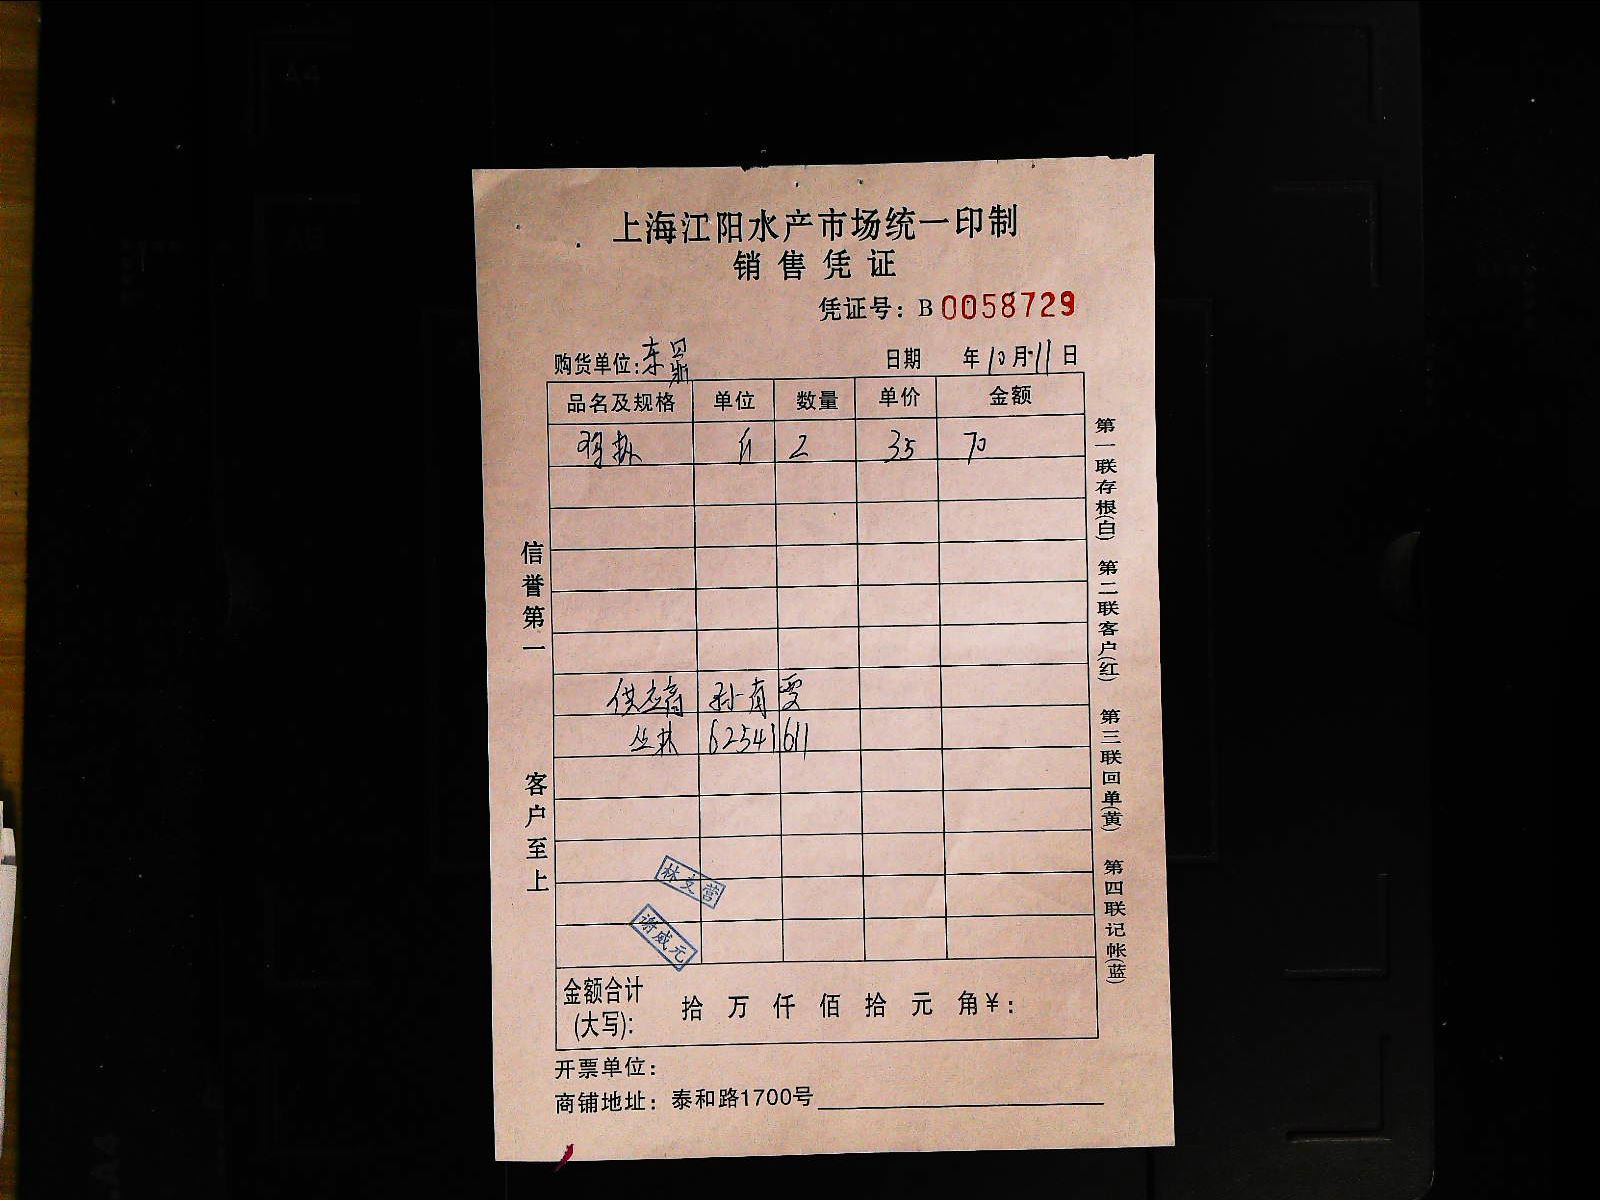 上海江阳水产市场统一印制
销售凭证
凭证号：B 0058729
购货单位：东
日期 年10月11日
品名及规格 单位 数量 单价 金额
斤 2 35 70
供应商 孙有雯
丛林 62541611
林文营
谢威元
金额合计(大写)： 拾 万 仟 佰 拾 元 角￥：
开票单位：
商铺地址：泰和路1700号
信誉第一
客户至上
第一联存根(白)
第二联客户(红)
第三联回单(黄)
第四联记帐(蓝)
A4